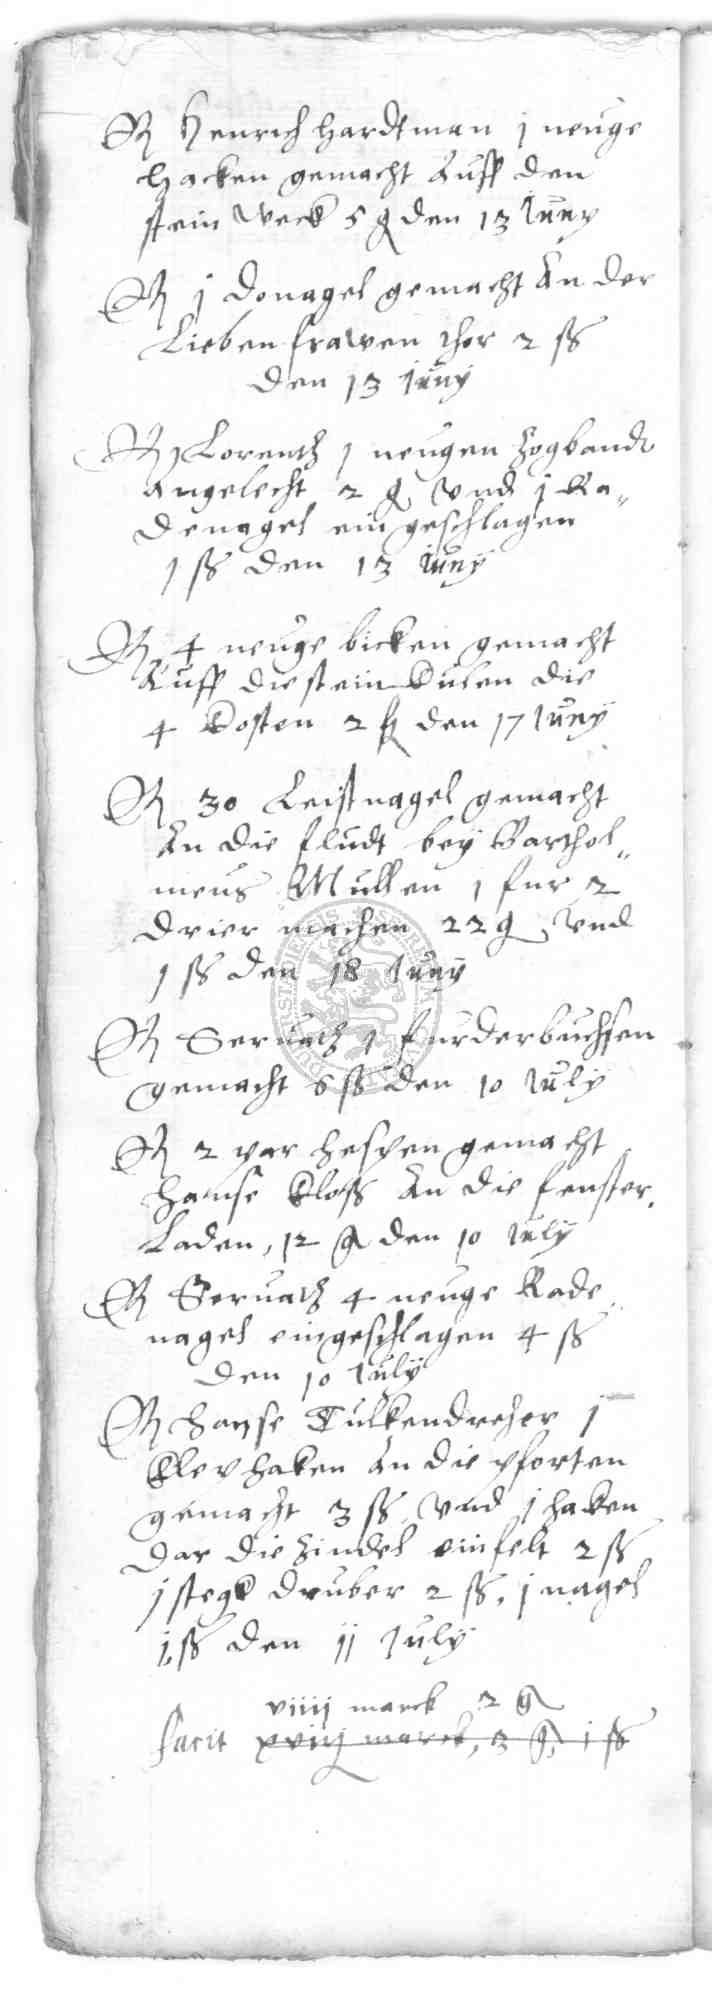 R Henrich Hardtman j neuge
hacken gemacht Auff den
stein weck 5 g den 13 Juny
R j donagel gemacht An der
Lieben frawen thor 2 ß
den 13 Juny
R Lorentz j neugen
angelecht 2 g, vnd j Ra„
denagel ein geschlagen
1 ß den 13 Juny
R 4 neuge bicken gemacht
Auff die stein Kulen die
4 Kosten den 17 Juny
R 30 Leistnagel gemacht
An die fludt bey Barthol„
meus Mullen 1 fur 2
drier machen 22 g, vnd
1 ß den 18 Juny
R Seruatz 1 furderbuchsen
gemacht 6 ß den 10 July
R 2 par hespen gemacht
Hanse Kloß An die fenster
Laden, 12 g den 10 July
R Seruatz 4 neuge Rade
nagel eingeschlagen 4 ß
den 10 July
R Hanse Tulkendreher j
haken An die pforten
gemacht 3 ß, vnd j haken
dar die hindel einfelt 2 ß
j stegk druber 2 ß, j nagel
j ß den jj July
viiij marck 2 g
facit xviij marck, 3 g, 1 ß